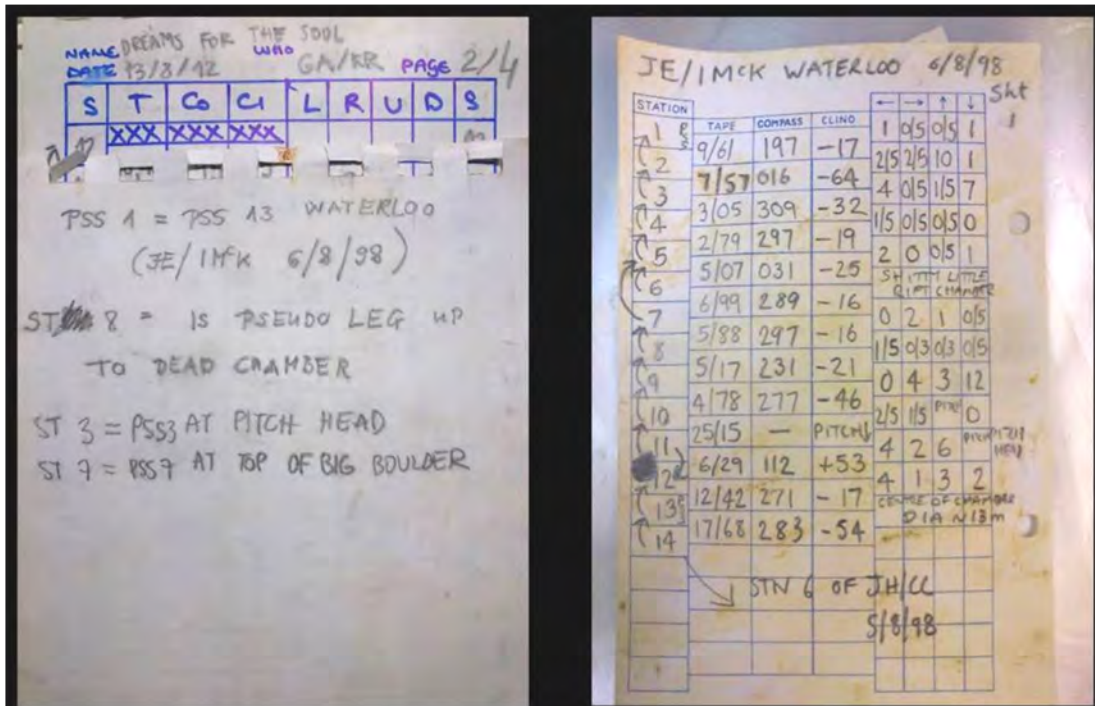 DREAMS FOR THE SOUL
NAME WHO
DATE 13/8/12 GA/KR PAGE 2/4
S T Co Cl L R U D S
XXX XXX XXX
PSS 1 = PSS 13 WATERLOO
(JE/IMcK 6/8/98)
ST 8 = IS PSEUDO LEG UP
TO DEAD CHAMBER
ST 3 = PSS3 AT PITCH HEAD
ST 7 = PSS7 AT TOP OF BIG BOULDER
JE/IMcK WATERLOO 6/8/98
Sht
1
STATION TAPE COMPASS CLINO ← → ↑ ↓
1 PSS 1 0/5 0/5 1
9/61 197 -17
2 2/5 2/5 10 1
7/57 016 -64
3 4 0/5 1/5 7
3/05 309 -32
4 1/5 0/5 0/5 0
2/79 297 -19
5 2 0 0/5 1
5/07 031 -25
6 SHITTY LITTLE
RIFT CHAMBER
6/99 289 -16
7 0 2 1 0/5
5/88 297 -16
8 1/5 0/3 0/3 0/5
5/17 231 -21
9 0 4 3 12
4/78 277 -46
10 2/5 1/5 PITCH 0
25/15 — PITCH↓
11 4 2 6 PITCH PITCH
HEAD
6/29 112 +53
12 4 1 3 2
12/42 271 -17
13 PSS CENTRE OF CHAMBER
DIA N 13m
17/68 283 -54
14
STN 6 OF JH/CC
5/8/98